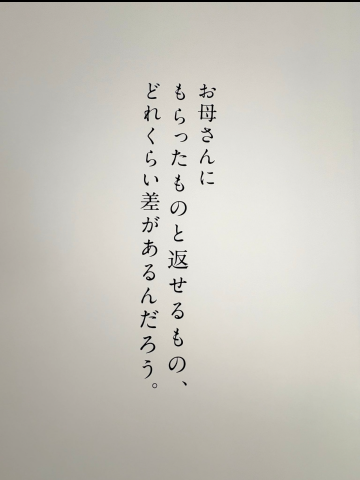 お母さんに
もらったものと返せるもの、
どれくらい差があるんだろう。